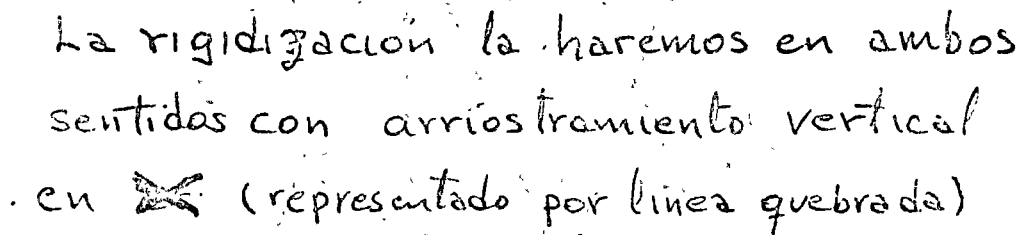 La rigidización la haremos en ambos
sentidos con arriostramiento vertical
en (representado por linea quebrada)